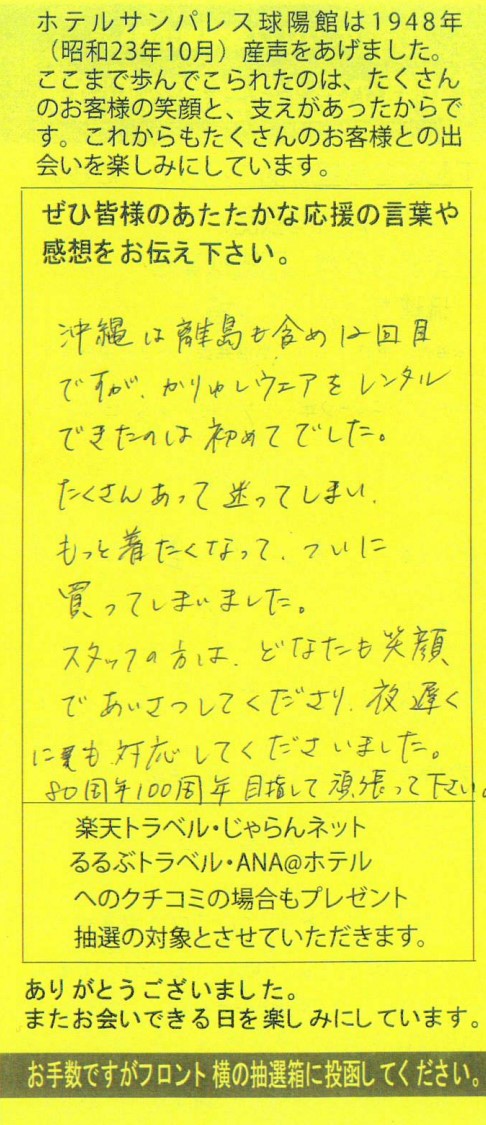 ホテルサンパレス球陽館は1948年
（昭和23年10月）産声をあげました。
ここまで歩んでこられたのは、たくさん
のお客様の笑顔と、支えがあったからで
す。これからもたくさんのお客様との出
会いを楽しみにしています。
ぜひ皆様のあたたかな応援の言葉や
感想をお伝え下さい。
沖縄は離島も含め12回目
ですが、かりゆしウエアをレンタル
できたのは初めてでした。
たくさんあって迷ってしまい、
もっと着たくなって、ついに
買ってしまいました。
スタッフの方は、どなたも笑顔
であいさつしてくださり、夜遅く
にも対応してくださいました。
80周年100周年目指して頑張って下さい。
楽天トラベル・じゃらんネット
るるぶトラベル・ANA@ホテル
へのクチコミの場合もプレゼント
抽選の対象とさせていただきます。
ありがとうございました。
またお会いできる日を楽しみにしています。
お手数ですがフロント横の抽選箱に投函してください。